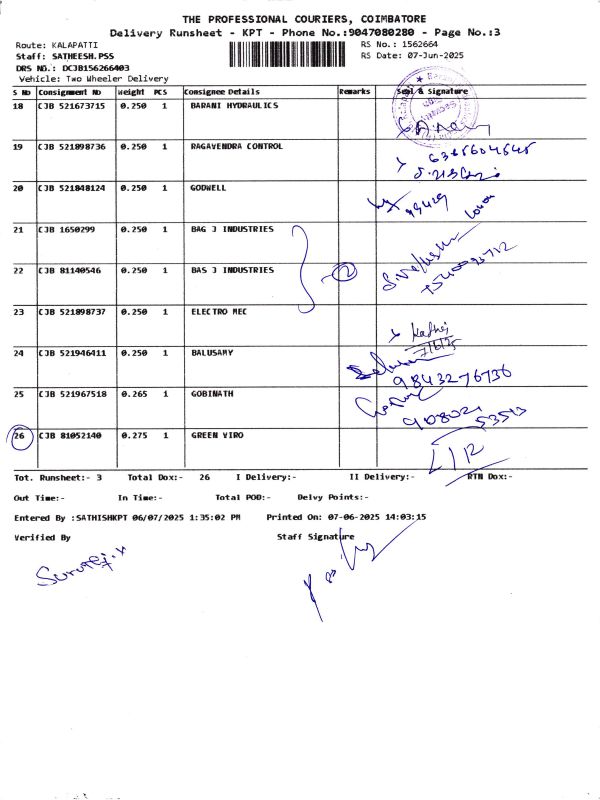 THE PROFESSIONAL COURIERS, COIMBATORE
Delivery Runsheet - KPT - Phone No.:9047080280 - Page No.:3
Route: KALAPATTI
RS No.: 1562664
Staff: SATHEESH.PSS
RS Date: 07-Jun-2025
DRS NO.: DCJB156266403
Vehicle: Two Wheeler Delivery
S No Consignment No Weight PCS Consignee Details Remarks Seal & Signature
18 CJB 521673715 0.250 1 BARANI HYDRAULICS
19 CJB 521898736 0.250 1 RAGAVENDRA CONTROL
6385604545
20 CJB 521848124 0.250 1 GODWELL
21 CJB 1650299 0.250 1 BAG J INDUSTRIES
22 CJB 81140546 0.250 1 BAS J INDUSTRIES
2
23 CJB 521898737 0.250 1 ELECTRO MEC
7/6/25
24 CJB 521946411 0.250 1 BALUSAMY
9843276736
25 CJB 521967518 0.265 1 GOBINATH
26 CJB 81052140 0.275 1 GREEN VIRO
Tot. Runsheet:- 3 Total Dox:- 26 I Delivery:- II Delivery:- RTN Dox:-
Out Time:- In Time:- Total POD:- Delvy Points:-
Entered By :SATHISHKPT 06/07/2025 1:35:02 PM Printed On: 07-06-2025 14:03:15
Verified By Staff Signature